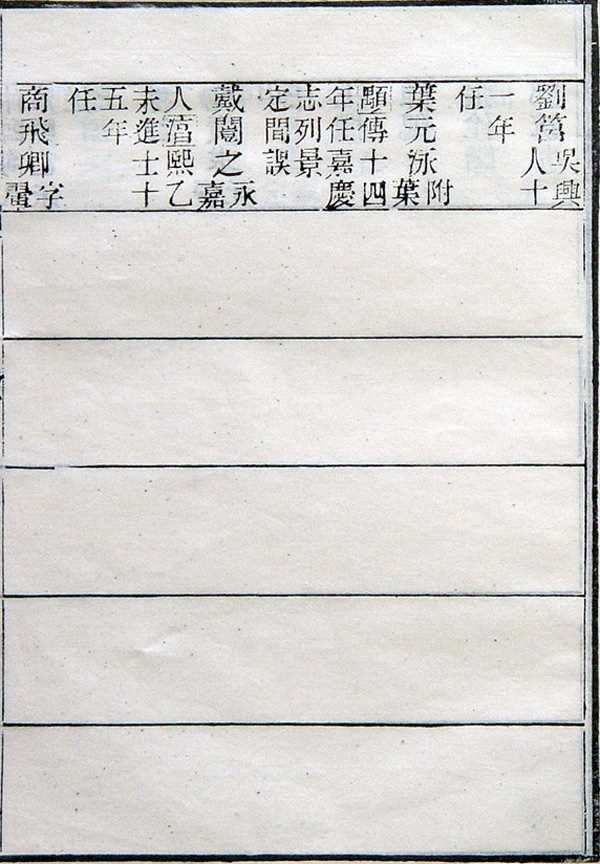 劉 吳興人十
一年
任
葉元泳 附葉
顒傳十四
年任嘉慶
志列景
定間誤
戴闓之 永嘉
人湻熙乙
未進士十
五年
任
商飛卿 字翬